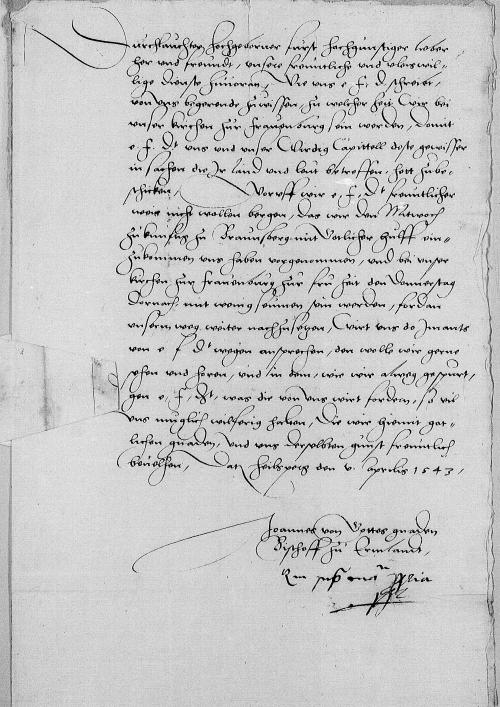 Durchlauchter, hochgeborner furst hochgunstiger lieber
her und freundt, unsere freuntliche und vleiswil-
lige dienste hinvoran, Wie uns e f d schreibt,
von uns begerende zuwissen, zu welcher zeit wir bei
unser kirchen zur Frauenburg sein werden, Domit
e f dt uns und unser Wirdig Capittell deste gewisser
in sachen die Ir land und leut betreffen, hett zube-
schicken, Doruff wir e f dt freuntlicher
weis nicht wollen bergen, das wir den Mitwoch
zukunftig zu Braunsberg mit Gotlicher hulff ein-
zukommen uns haben vorgenommen, und bei unser
kirchen zur Frauenburg zur fru zeit den Donnerstag
dornach mit wenig seumen sein werden, fordan
unsern weg weiter nachzusetzen, Wirt uns do Imants
von e f dt wegen ansprechen, den wolle wir gerne
sehen und horen, und in dem, wie wir alweg gespurt,
gen e f dt, was die von uns wirt fordern, so vil
uns muglich wilferig halten, Die wir hiemit got-
lichen gnaden, und uns derselbten gunst freuntlich
bevelhen, Dat Heilsperg den v. aprilis 1543,
Joannes von Gottes gnaden
Bischoff zu Ermlandt,
manu ppria